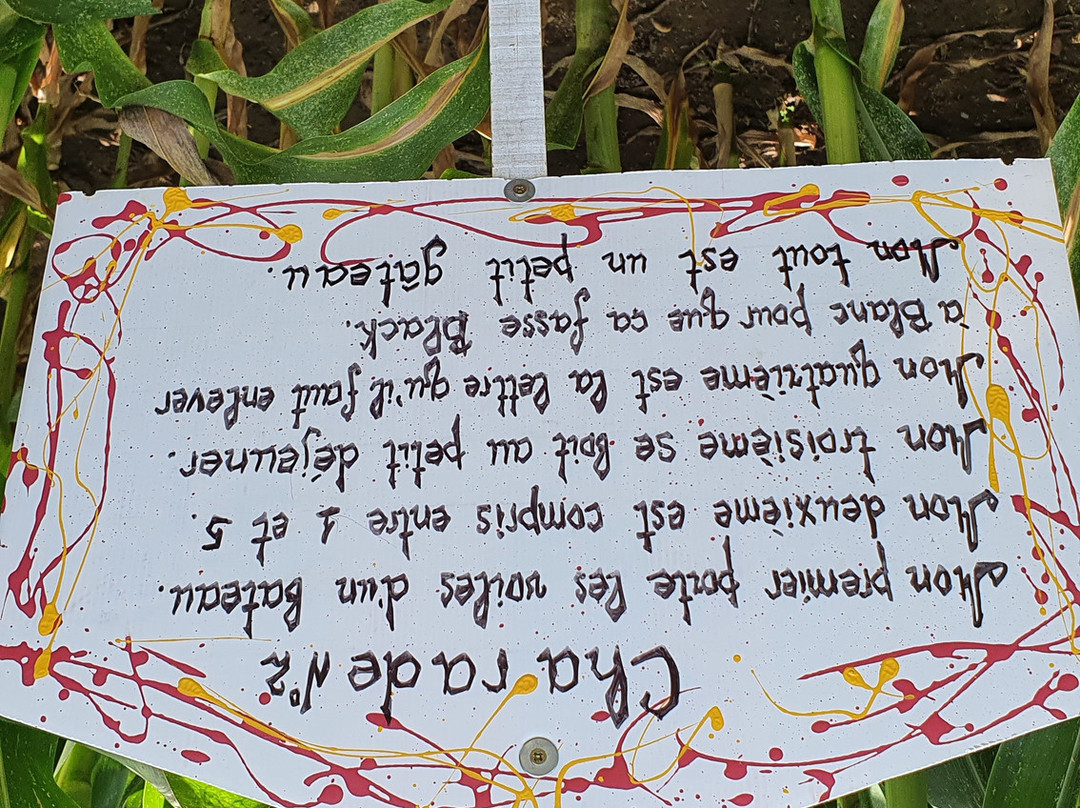 Charade N°2
Mon premier porte les voiles d'un Bateau.
Mon deuxième est compris entre 1 et 5.
Mon troisième se boit au petit déjeuner.
Mon quatrième est la lettre qu'il faut enlever
à Blanc pour que ca fasse Black.
Mon tout est un petit gâteau.